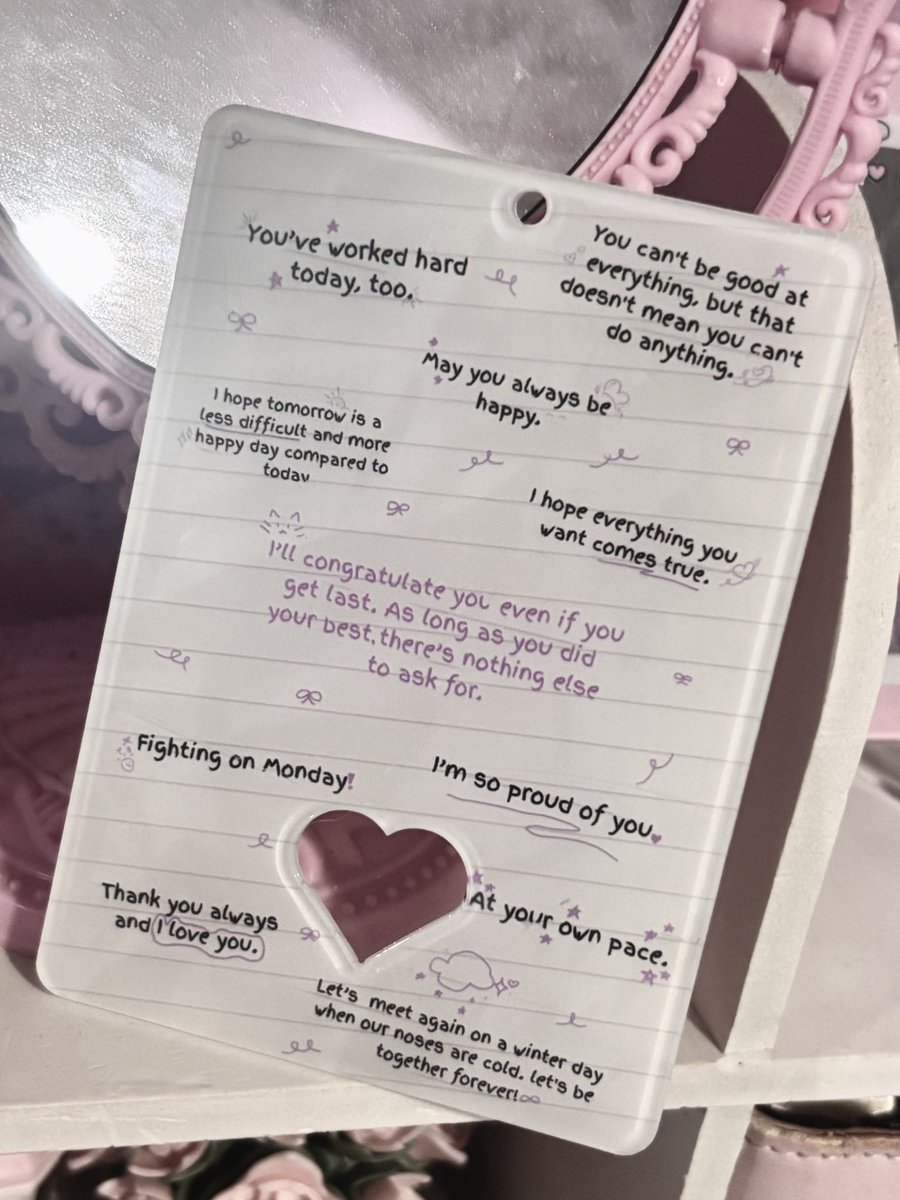 You've worked hard
today, too.
You can't be good at
everything, but that
doesn't mean you can't
do anything.
May you always be
happy.
I hope tomorrow is a
less difficult and more
happy day compared to
today
I hope everything you
want comes true.
I'll congratulate you even if you
get last. As long as you did
your best, there's nothing else
to ask for.
Fighting on Monday!
I'm so proud of you
Thank you always
and I love you.
At your own pace.
Let's meet again on a winter day
when our noses are cold. let's be
together forever!